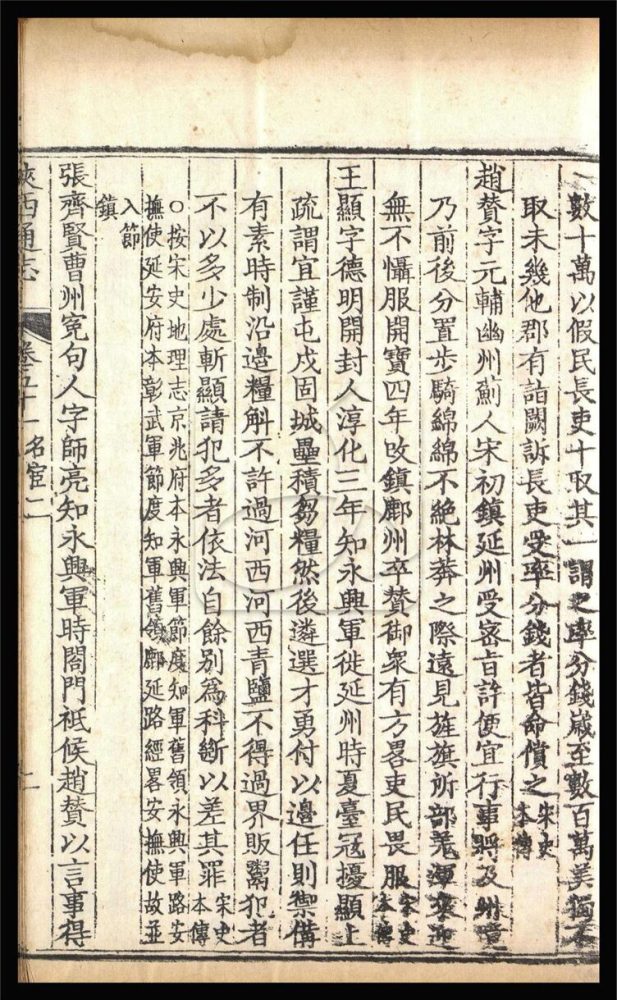 數十萬以假民長吏十取其一謂之率分錢歲至數百萬美獨不
取未幾他郡有詣闕訴長吏受率分錢者皆命償之宋史本傳
趙贊字元輔幽州薊人宋初鎮延州受密旨許便宜行事將及州境
乃前後分置步騎綿綿不絶林莽之際遠見旌旗所部羌渾來迎
無不懾服開寶四年改鎮鄜州卒贊御衆有方畧吏民畏服宋史本傳
王顯字德明開封人淳化三年知永興軍徙延州時夏臺寇擾顯上
疏謂宜謹屯戍固城壘積芻糧然後遴選才勇付以邊任則禦備
有素時制沿邊糧斛不許過河西河西青鹽不得過界販鬻犯者
不以多少處斬顯請犯多者依法自餘別爲科斷以差其罪宋史本傳
○按宋史地理志京兆府本永興軍節度知軍舊領永興軍路安
撫使延安府本彰武軍節度知軍舊領鄜延路經畧安撫使故並
入節
鎮
張齊賢曹州冤句人字師亮知永興軍時閤門祗候趙贊以言事得
陝西通志 卷五十一 名宦二